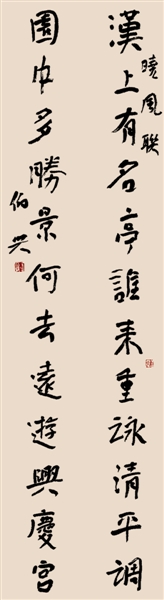 漢上有名亭誰來重詠清平調
曉風聯
園中多勝景何去遠遊興慶宮
伯昊